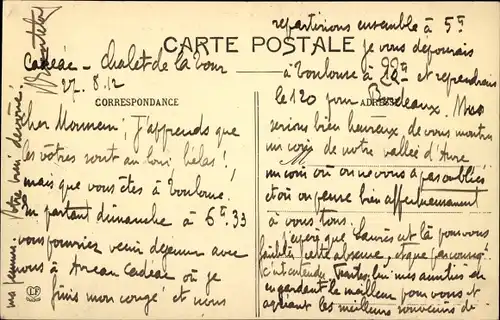 CARTE POSTALE
CORRESPONDANCE
ADRESSE
Cadéac - Chalet de la Tour
27. 8. 12
Cher Monsieur, J'apprends que
les vôtres sont au loin hélas!,
mais que vous êtes à Toulouse.
En partant dimanche à 6h.33
vous pourriez venir déjeuner avec
nous à Arreau Cadéac où je
finis mon congé et nous
repartirions ensemble à 5h
je vous déposerais
à Toulouse à 22h et reprendrais
le 120 pour Bordeaux. Nous
serions bien heureux, de vous montrer
un coin de notre vallée d'Aure
un coin où on ne vous a pas oubliés
et où on pense bien affectueusement
à vous tous.
J'espère que est là pouvons
cette absence, et que
mes amitiés en
en gardant le meilleur pour vous et
agréant les meilleurs souvenirs de
ma femme. Votre bien dévoué